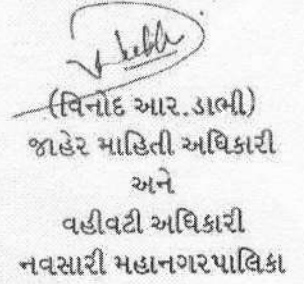 (વિનોદ આર.ડાભી)
જાહેર માહિતી અધિકારી
અને
વહીવટી અધિકારી
નવસારી મહાનગરપાલિકા